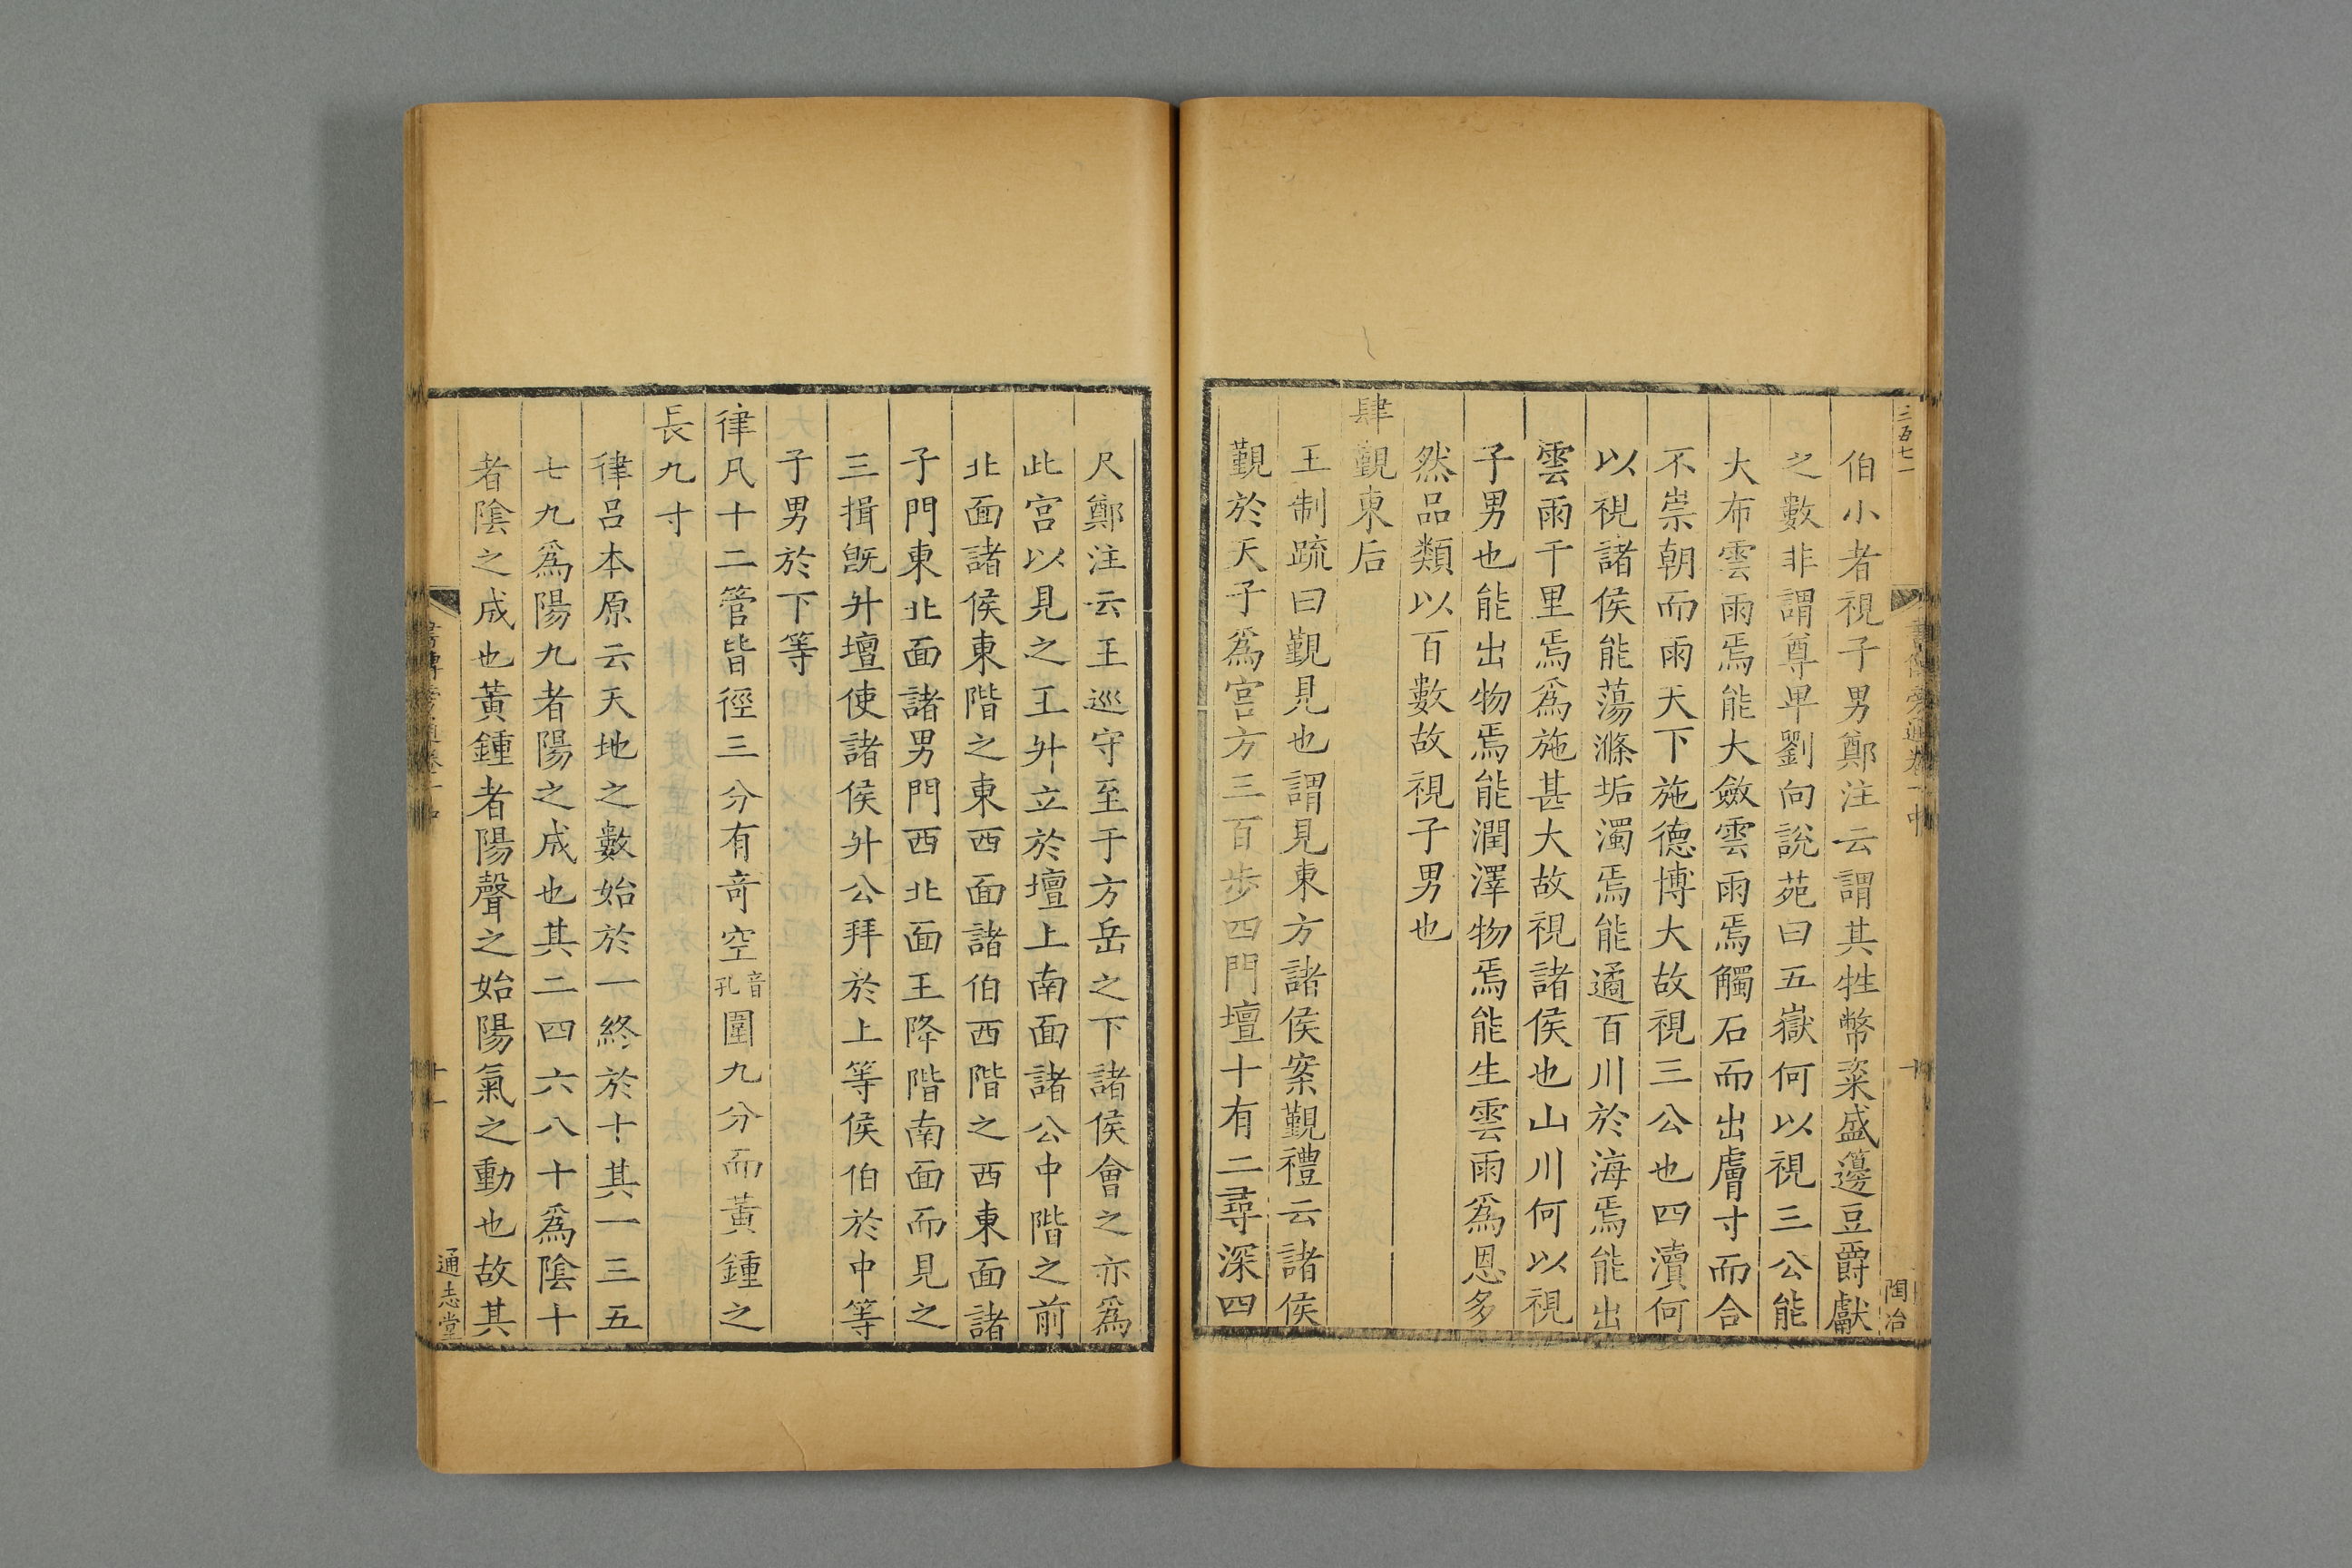 三百七一
書傳旁通卷一中
十
陶冶
伯小者視子男鄭注云謂其牲幣粢盛籩豆爵獻
之數非謂尊卑劉向說苑曰五嶽何以視三公能
大布雲雨焉能大斂雲雨焉觸石而出膚寸而合
不崇朝而雨天下施德博大故視三公也四瀆何
以視諸侯能蕩滌垢濁焉能通百川於海焉能出
雲雨千里焉爲施甚大故視諸侯也山川何以視
子男也能出物焉能潤澤物焉能生雲雨爲恩多
然品類以百數故視子男也
肆覲東后
王制疏曰覲見也謂見東方諸侯案覲禮云諸侯
覲於天子爲宮方三百步四門壇十有二尋深四
尺鄭注云王巡守至于方岳之下諸侯會之亦爲
此宮以見之王升立於壇上南面諸公中階之前
北面諸侯東階之東西面諸伯西階之西東面諸
子門東北面諸男門西北面王降階南面而見之
三揖旣升壇使諸侯升公拜於上等侯伯於中等
子男於下等
律凡十二管皆徑三分有奇空音孔圍九分而黃鍾之
長九寸
律呂本原云天地之數始於一終於十其一三五
七九爲陽九者陽之成也其二四六八十爲陰十
者陰之成也黃鍾者陽聲之始陽氣之動也故其
書傳旁通卷一中
十一
通志堂